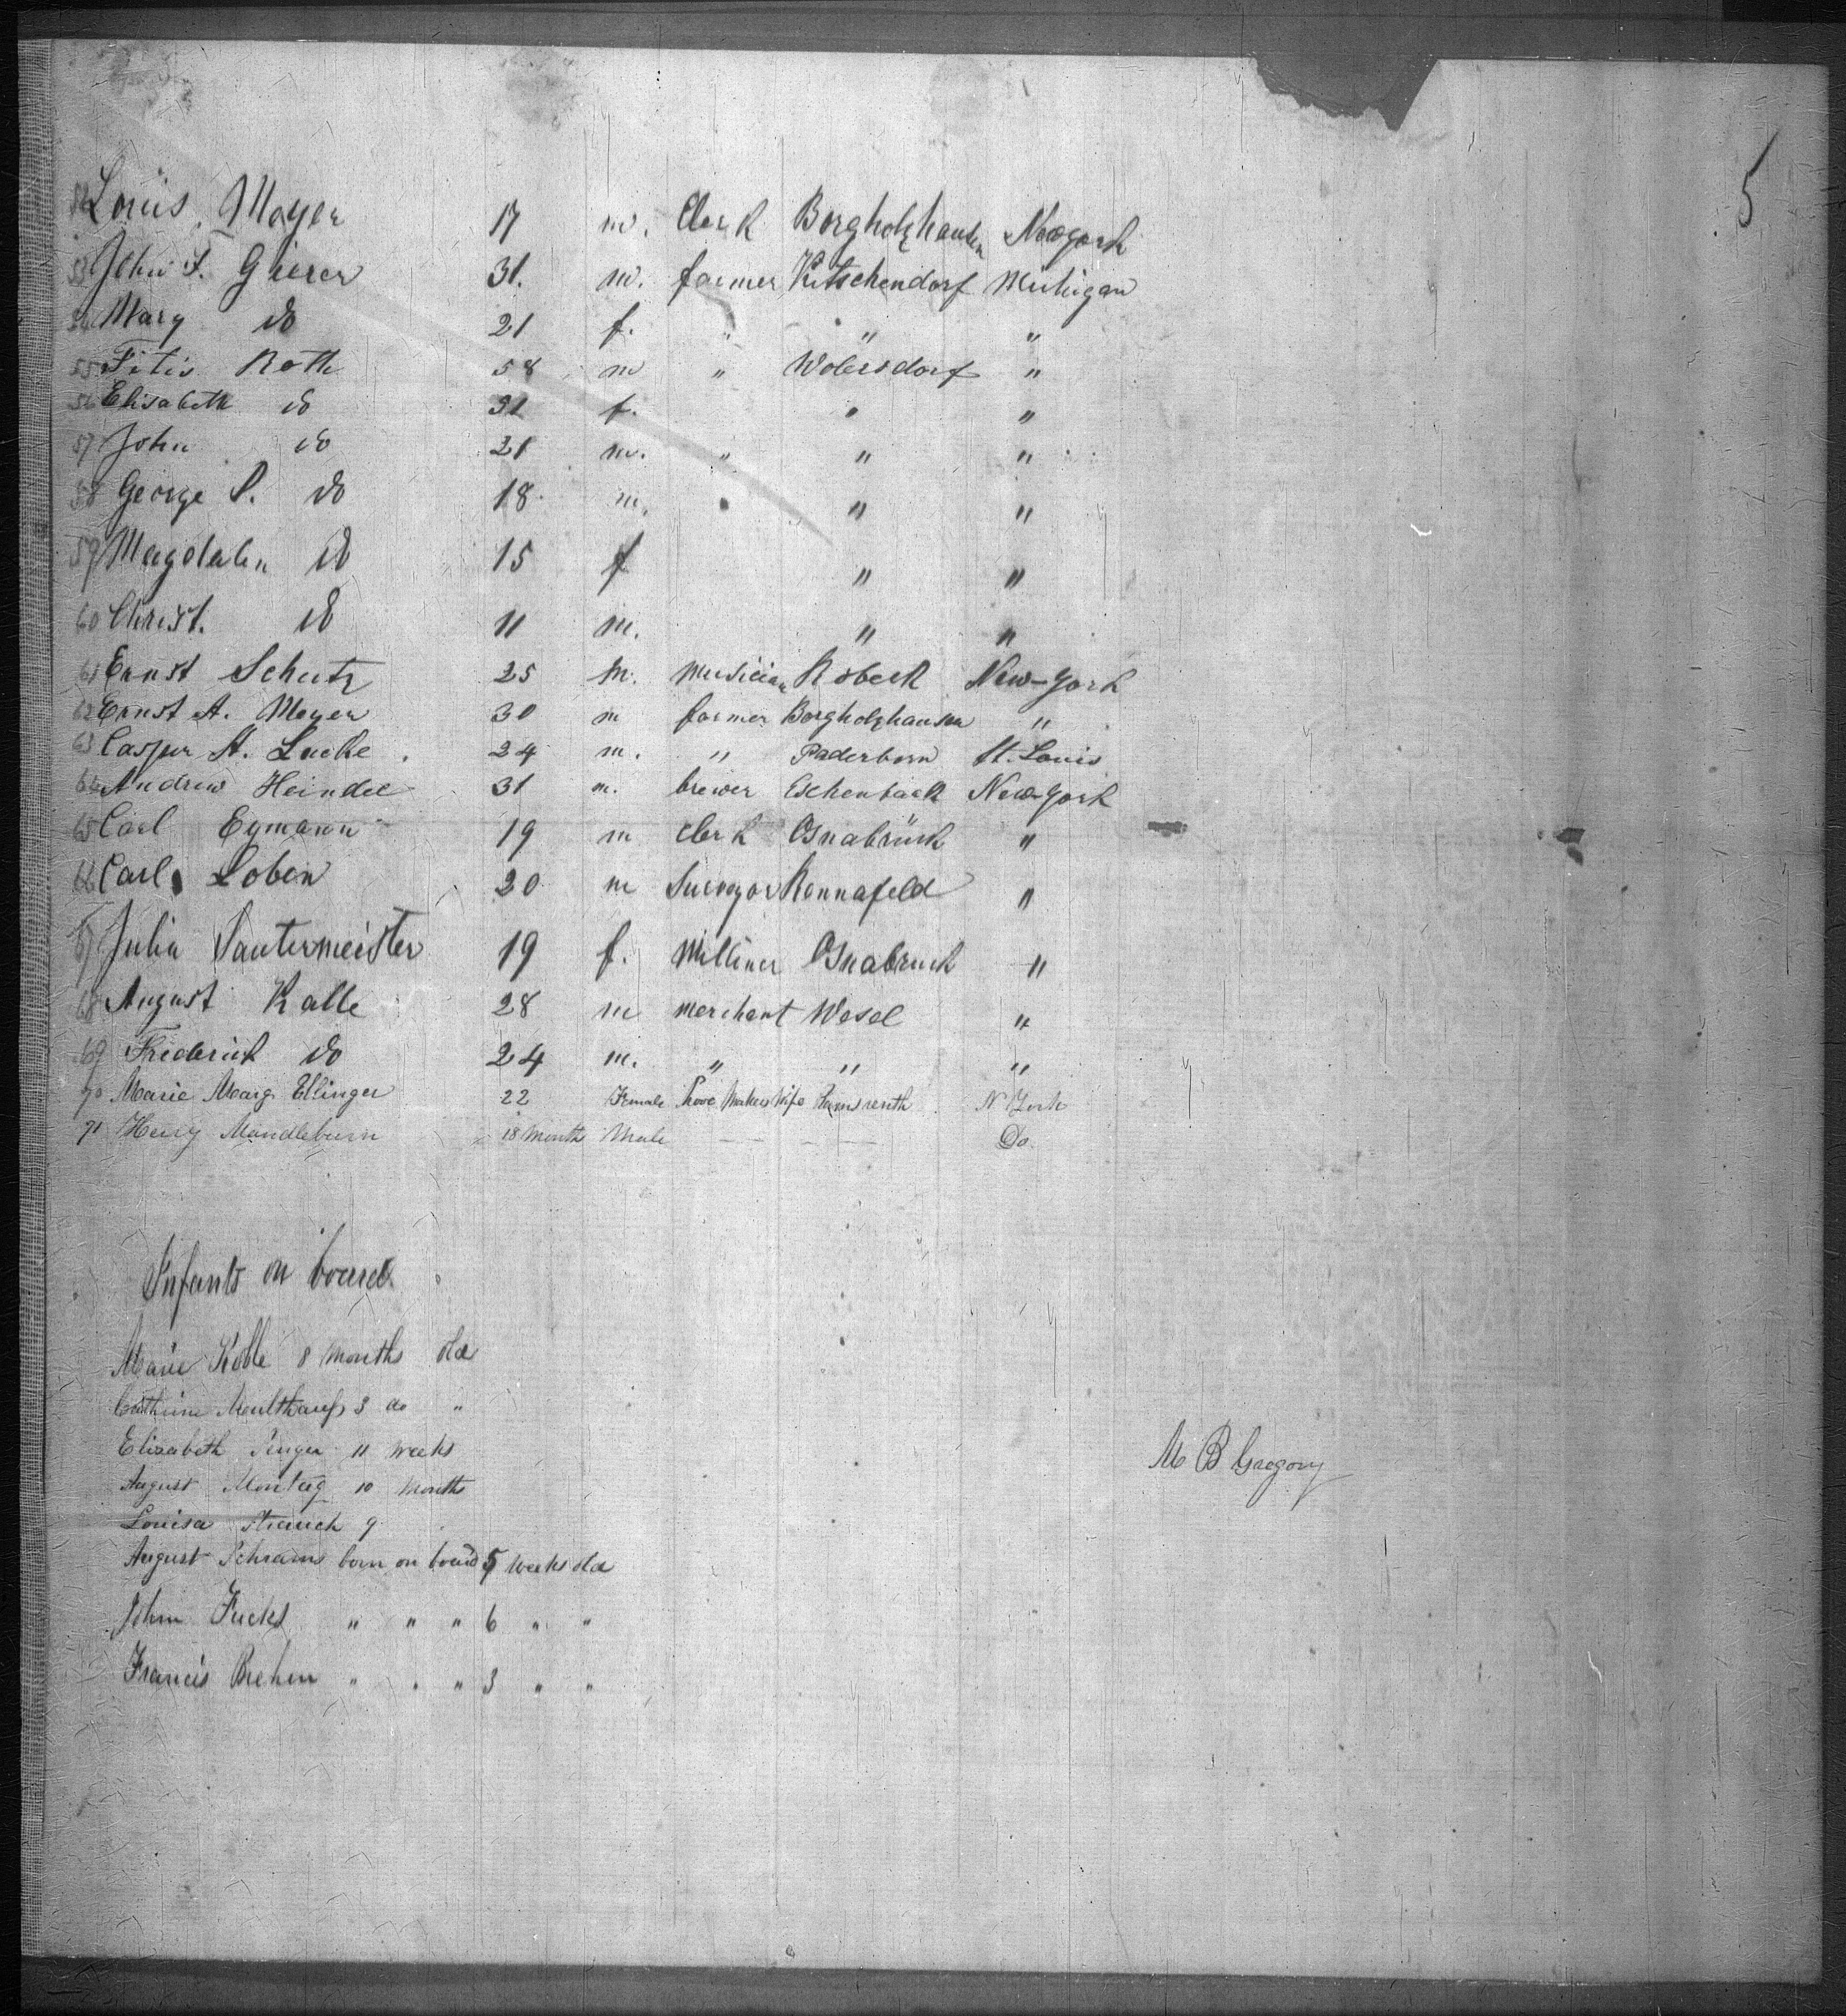 5
52 Louis Meyer 17 m. Clerk Borgholzhausen Newyork
53 John F. Gierer 31. m. farmer Kitschendorf Michigan
54 Mary do 21 f. " " "
55 Fitis Roth 58 m " Wobersdorf "
56 Elisabeth do 31 f. " "
57 John do 21 m. " " "
58 George P. do 18 m. " " "
59 Magdalen do 15 f " "
60 Christ. do 11 m. " "
61 Ernst Schutz 25 m. Musician Robeck New-York
62 Ernst A. Meyer 30 m farmer Borgholzhausen "
63 Casper H. Lucke 24 m. " Paderborn St. Louis
64 Andrew Heindel 31 m. brewer Eschenbach New-York
65 Carl Eymann 19 m clerk Osnabrück "
66 Carl Loben 20 m Surveyor Rennafeld "
67 Julia Sautermeister 19 f. Milliner Osnabruck "
68 August Kalle 28 m merchant Wesel "
69 Frederick do 24 m. " " "
70 Marie Marg. Ellinger 22 Female Shoe Makers Wife N York
71 Henry Mandleburn 18 Months Male — — — — Do.
Infants on board
Marie Kolle 8 Months old
Cathrine Multhauf 3 do "
Elizabeth 11 weeks
August Montag 10 Months
Louisa Strauch 9
August Schrams born on board 5 weeks old
M B Gregory
John Fucks " " " 6 " "
Francis Brehm " " " 3 " "